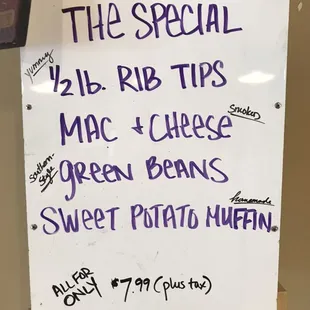 THE SPECIAL
Yummy
1/2 lb. RIB TIPS
Smokey
MAC + CHEESE
Southern-Style
GREEN BEANS
homemade
SWEET POTATO MUFFIN
ALL FOR ONLY
$7.99 (plus tax)